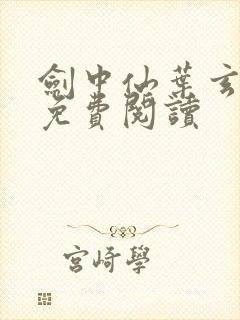 劍中仙葉玄
免費閱讀
宮崎學